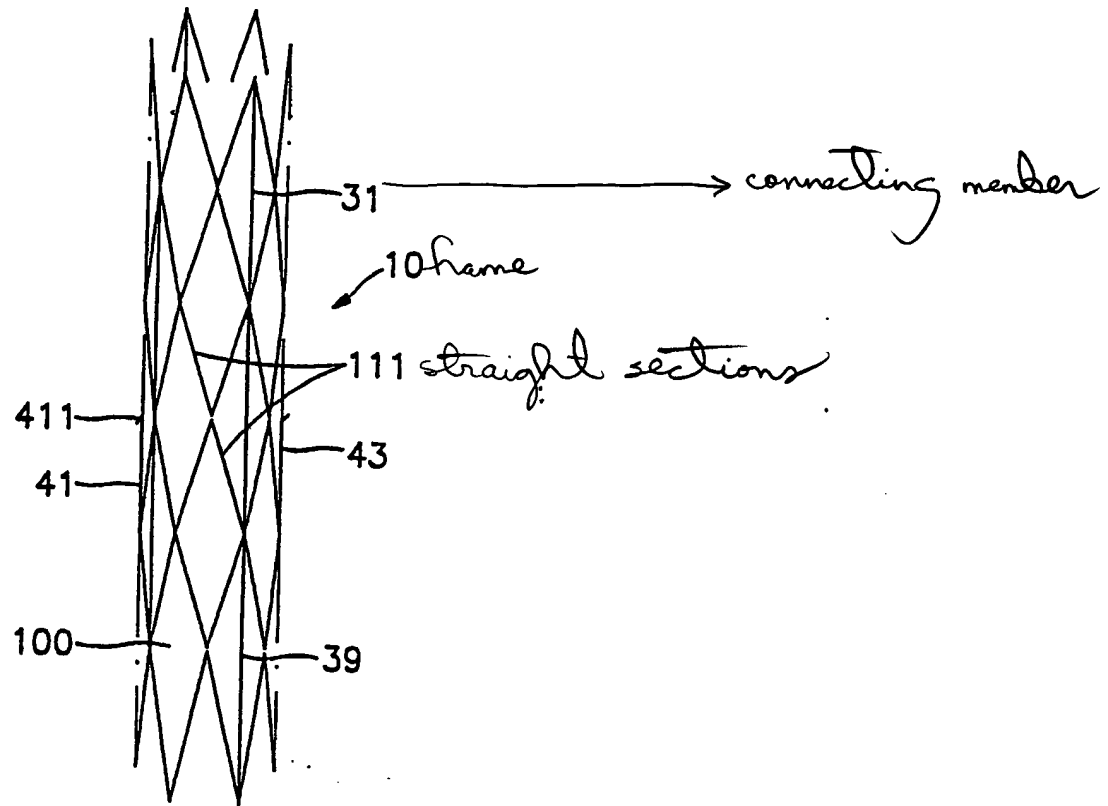 31 connecting member
10 frame
111 straight sections
411
43
41
100
39